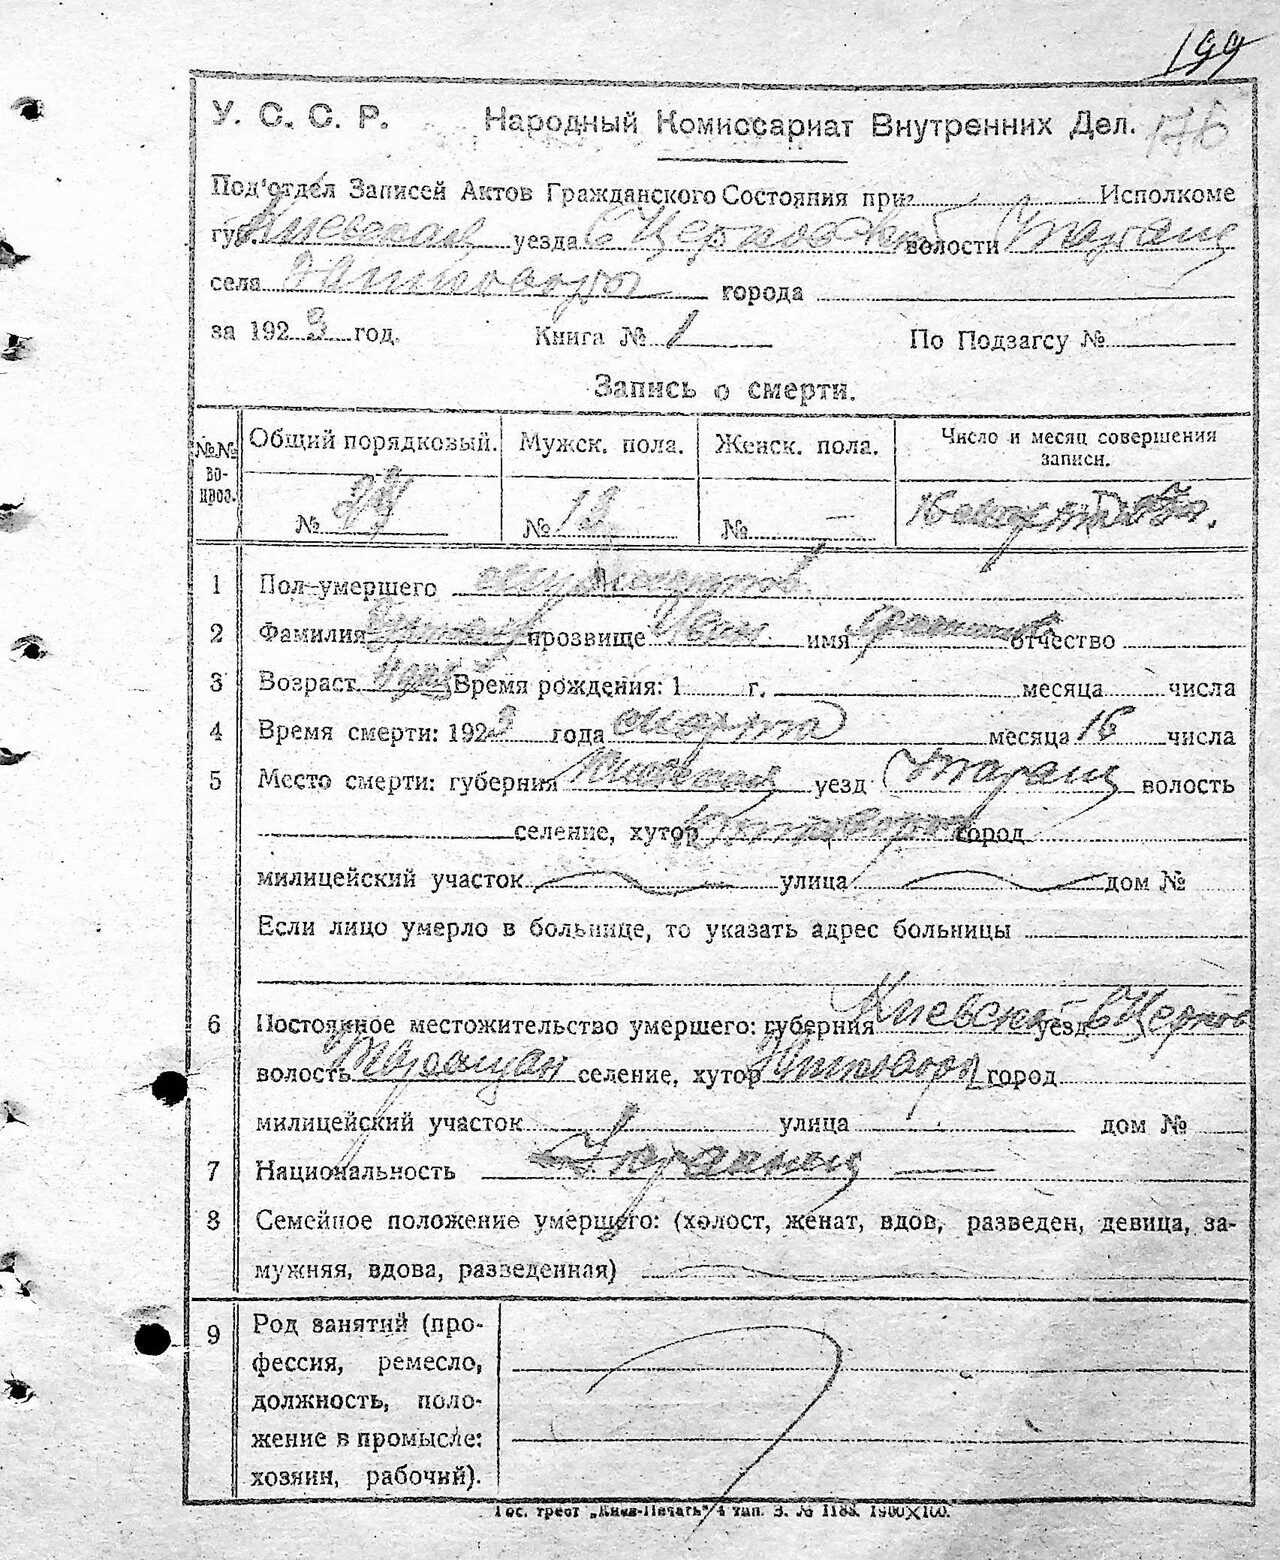 199
У. С. С. Р. Народный Комиссариат Внутренних Дел. 176
Под'отдел Записей Актов Гражданского Состояния при: Исполкоме
губ. Киевская уезда Б Церковск волости Таращ
села города
за 1923 год. Книга № 1 По Подзагсу №
Запись о смерти.
№№ во-прос. Общий порядковый. Мужск. пола. Женск. пола. Число и месяц совершения записи.
№ № 13 № — 16 марта
1 Пол умершего
2 Фамилия прозвище имя отчество
3 Возраст Время рождения: 1 г. месяца числа
4 Время смерти: 1923 года марта месяца 16 числа
5 Место смерти: губерния Киевская уезд Таращ волость
селение, хутор город
милицейский участок улица дом №
Если лицо умерло в больнице, то указать адрес больницы
6 Постоянное местожительство умершего: губерния Киевской уезд Б Церков
волость Таращан селение, хутор город
милицейский участок улица дом №
7 Национальность Украинец
8 Семейное положение умершего: (холост, женат, вдов, разведен, девица, за-
мужняя, вдова, разведенная)
9 Род занятий (про-
фессия, ремесло,
должность, поло-
жение в промысле:
хозяин, рабочий).
Гос. трест „Киев-Печать" 4 тип. З. № 1188. 1900×100.